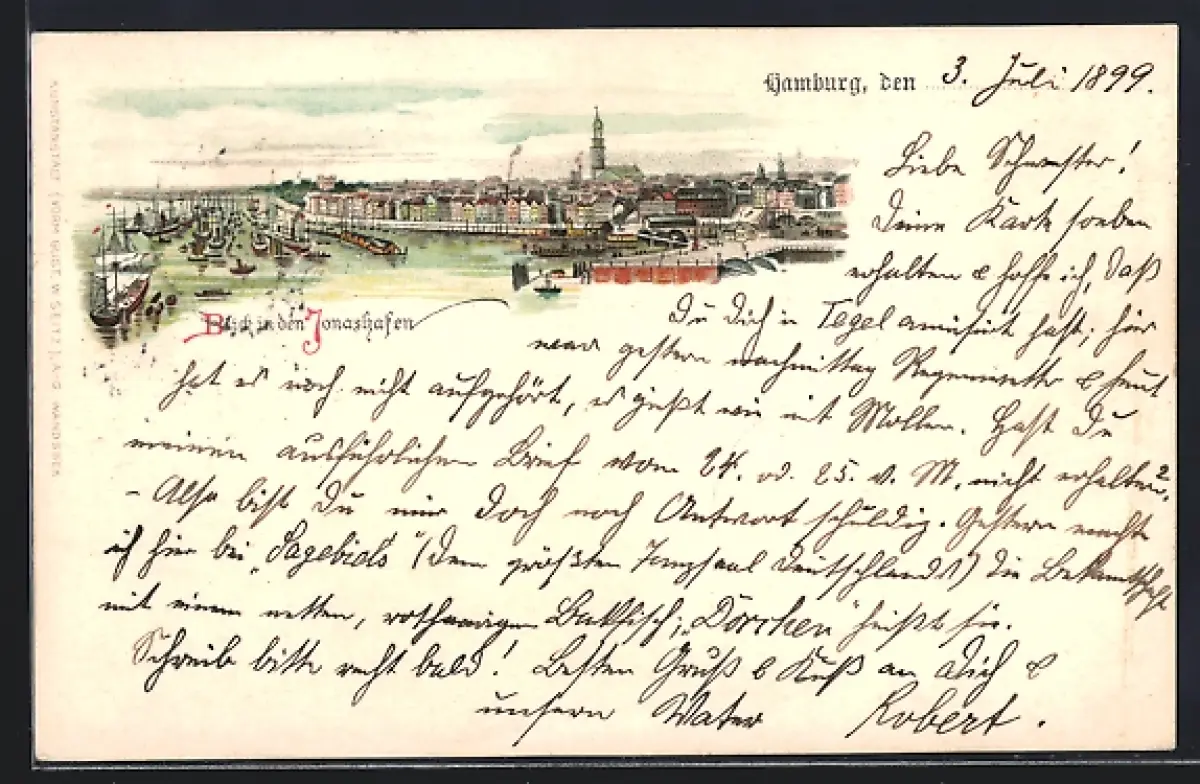 Hamburg, den 3. Juli 1899.
Liebe Schwester!
Deine Karte soeben
erhalten & hoffe ich, daß
Du Dich in Tegel amüsirt hast; hier
war gestern nachmittag Regenwetter & heut
hat es noch nicht aufgehört, es gießt wie mit Mollen. Hast Du
meinen ausführlichen Brief vom 24. od. 25. v. M. nicht erhalten?
- Also bist Du mir doch noch Antwort schuldig. Gestern machte
ich hier bei „Sagebiels" (dem größten Tanzsaal Deutschlands) die Bekanntschaft
mit einem netten, rothhaarigen Backfisch; „Dorchen" heißt sie.
Schreib bitte recht bald! Besten Gruß & Kuß an Dich &
unsern Vater Robert.
Blick in den Jonashafen
KUNSTANSTALT (VORM. GUST. W. SEITZ) A.G. WANDSBEK